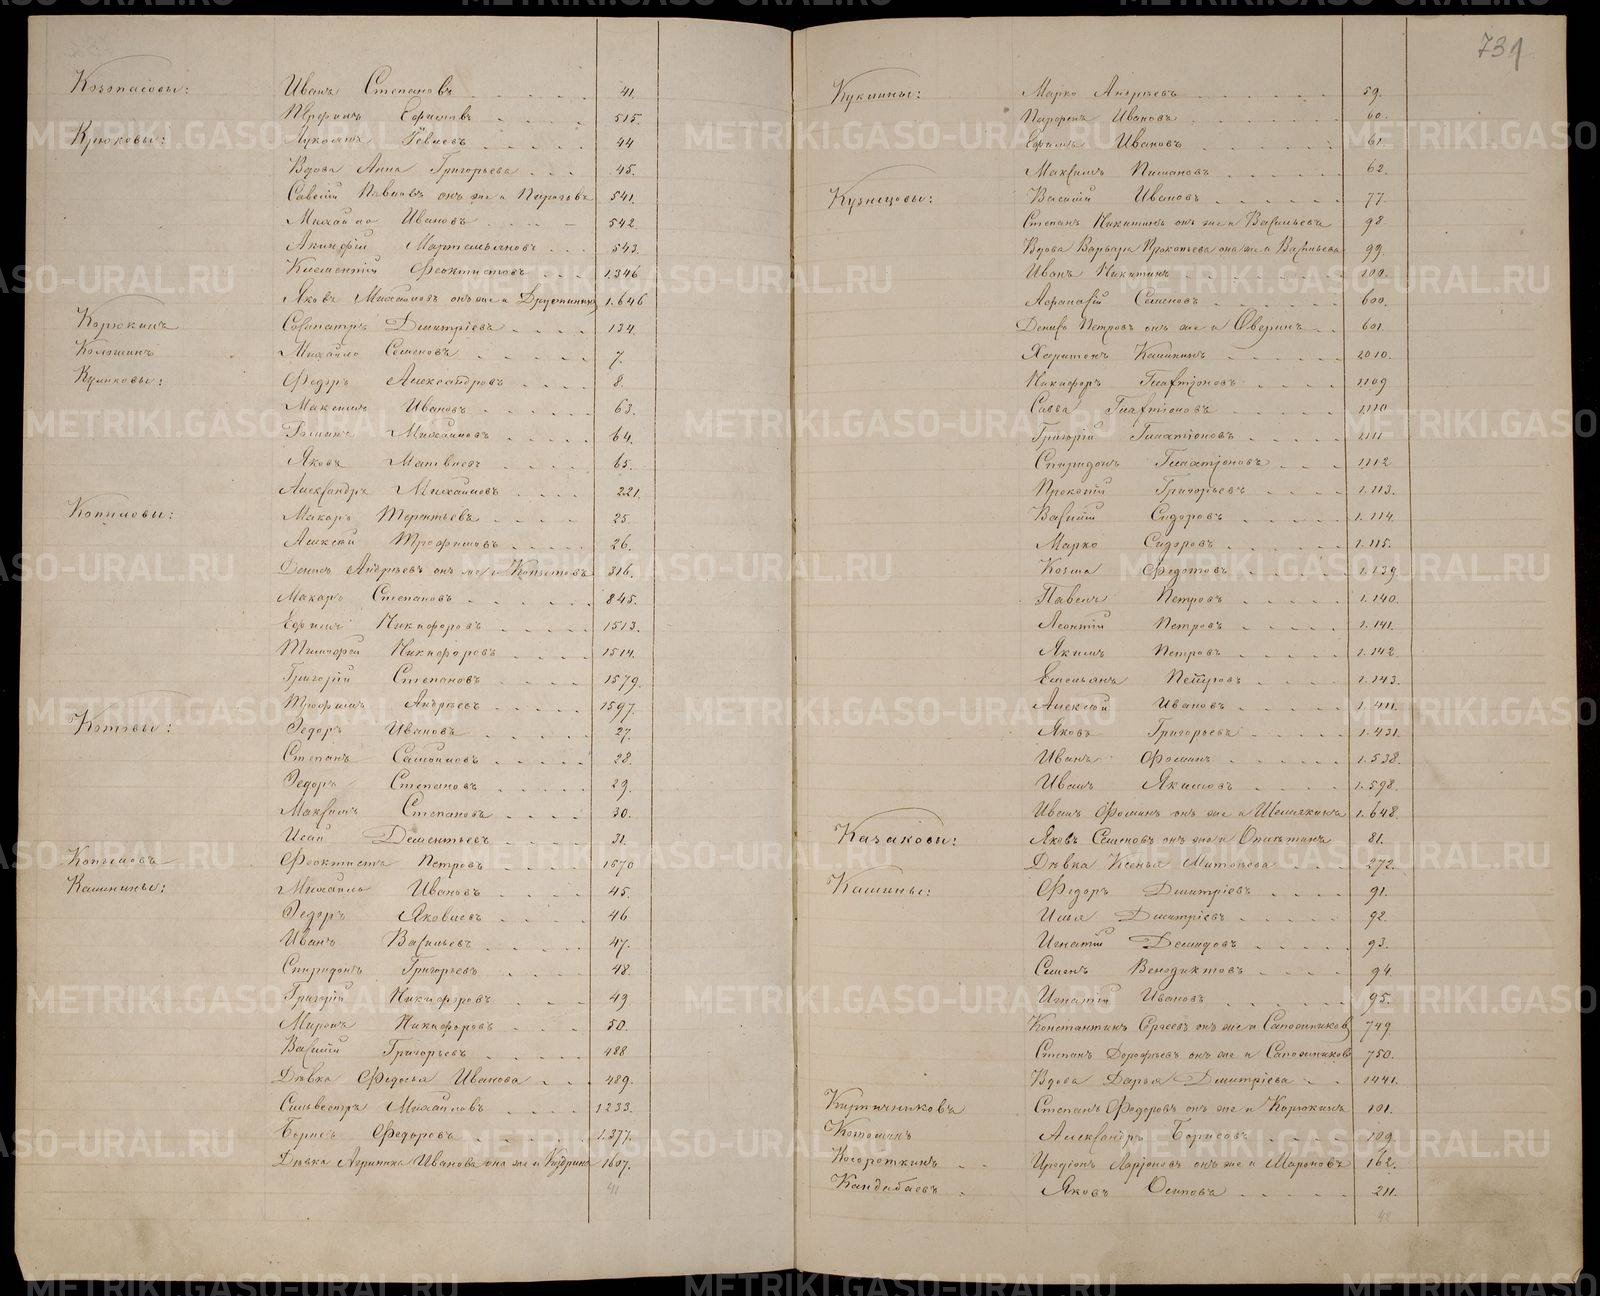 731
Иванъ Степановъ 41.
Ефимовъ 515.
Крюковы: 44
Вдова Анна Григорьева 45.
Савелій Павловъ онъ же и 541.
Михайло Ивановъ 542.
Акинфій Мартемьяновъ 543.
Клементій Феоктистовъ 1.346
Яковъ Михайловъ онъ же и Дружининъ 1.646
Корюкинъ Сосипатръ Дмитріевъ 134.
Михайло Семеновъ 7.
Куликовы: Федоръ Александровъ 8.
Максимъ Ивановъ 63.
Михайловъ 64.
Яковъ Матвѣевъ 65.
Александръ Михайловъ 221.
Копыловы: Макаръ Терентьевъ 25.
Алексѣй Трофимовъ 26.
Денисъ Андрѣевъ онъ же и 316.
Макаръ Степановъ 845.
Ефимъ Никифоровъ 1513.
Тимофей Никифоровъ 1514.
Григорій Степановъ 1579.
Трофимъ Андрѣевъ 1597.
Котовы: Федоръ Ивановъ 27.
Степанъ Самойловъ 28.
Федоръ Степановъ 29.
Максимъ Степановъ 30.
Исай Дементьевъ 31.
Копыловъ Феоктистъ Петровъ 1670
Кашинины: Михайло Ивановъ 45.
Федоръ Яковлевъ 46
Иванъ Васильевъ 47.
Спиридонъ Григорьевъ 48.
Григорій Никифоровъ 49
Миронъ Никифоровъ 50.
Василій Григорьевъ 488
Дѣвка Федосья Иванова 489.
Сильвестръ Михайловъ 1233.
Борисъ Федоровъ 1.377.
Дѣвка Иванова она же и 1607.
41
Кукшины: Марко Андрѣевъ 59.
Парфенъ Ивановъ 60.
Ефимъ Ивановъ 61.
Максимъ 62.
Кузнецовы: Василій Ивановъ 77.
Степанъ Никитинъ онъ же и Васильевъ 98.
Вдова Варвара Прокопьева она же и Васильева 99.
Иванъ Никитинъ 100.
Афанасій Семеновъ 600.
Денисъ Петровъ онъ же и Оверинъ 601.
Харитонъ 2010.
Никифоръ Галактіоновъ 1.109
Савва Галактіоновъ 1.110
Григорій Галактіоновъ 1.111
Спиридонъ Галактіоновъ 1.112
Прокопій Григорьевъ 1.113.
Василій Сидоровъ 1.114.
Марко Сидоровъ 1.115.
Козма Федотовъ 1.139.
Павелъ Петровъ 1.140.
Леонтій Петровъ 1.141.
Якимъ Петровъ 1.142
Емельянъ Петровъ 1.143.
Алексѣй Ивановъ 1.411.
Яковъ Григорьевъ 1.431.
Иванъ Фоминъ 1.538.
Иванъ Якимовъ 1.598.
Иванъ Фоминъ онъ же и 1.648.
Казаковы: Яковъ Семеновъ онъ же и 81.
Дѣвка Ксенья 272.
Кашины: Федоръ Дмитріевъ 91.
Илья Дмитріевъ 92.
Игнатій Демидовъ 93.
Семенъ Венедиктовъ 94.
Игнатій Ивановъ 95.
Константинъ Сергѣевъ онъ же и Сапожниковъ 749.
Степанъ Дорофѣевъ онъ же и Сапожниковъ 750.
Вдова Дарья Дмитріева 1441.
Кирпичниковъ Степанъ Федоровъ онъ же и Корюкинъ 101.
Александръ Борисовъ 109.
Косороткинъ Ларіоновъ онъ же и Мароновъ 162.
Кандабаевъ Яковъ Осиповъ 211.
42